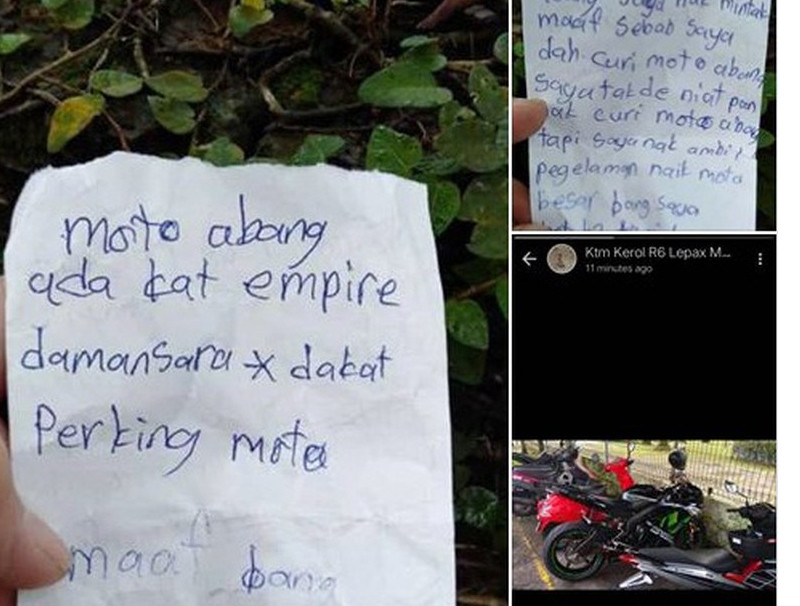 moto abang
ada kat empire
damansara x dakat
Perking moto
maaf bang
saya nak mintak
maaf sebab saya
dah curi moto abang
saya takde niat pon
nak curi moto abang
tapi saya nak ambil
pegelaman naik moto
besar bang saya
Ktm Kerol R6 Lepax M...
11 minutes ago